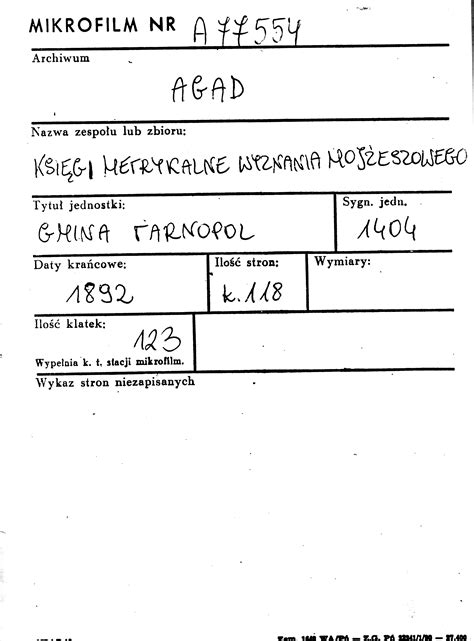 MIKROFILM NR A 77554
Archiwum
AGAD
Nazwa zespołu lub zbioru:
KSIĘGI METRYKALNE WYZNANIA MOJŻESZOWEGO
Tytuł jednostki:
GMINA TARNOPOL
Sygn. jedn.
1404
Daty krańcowe:
1892
Ilość stron:
k. 118
Wymiary:
Ilość klatek:
123
Wypełnia k. t. stacji mikrofilm.
Wykaz stron niezapisanych